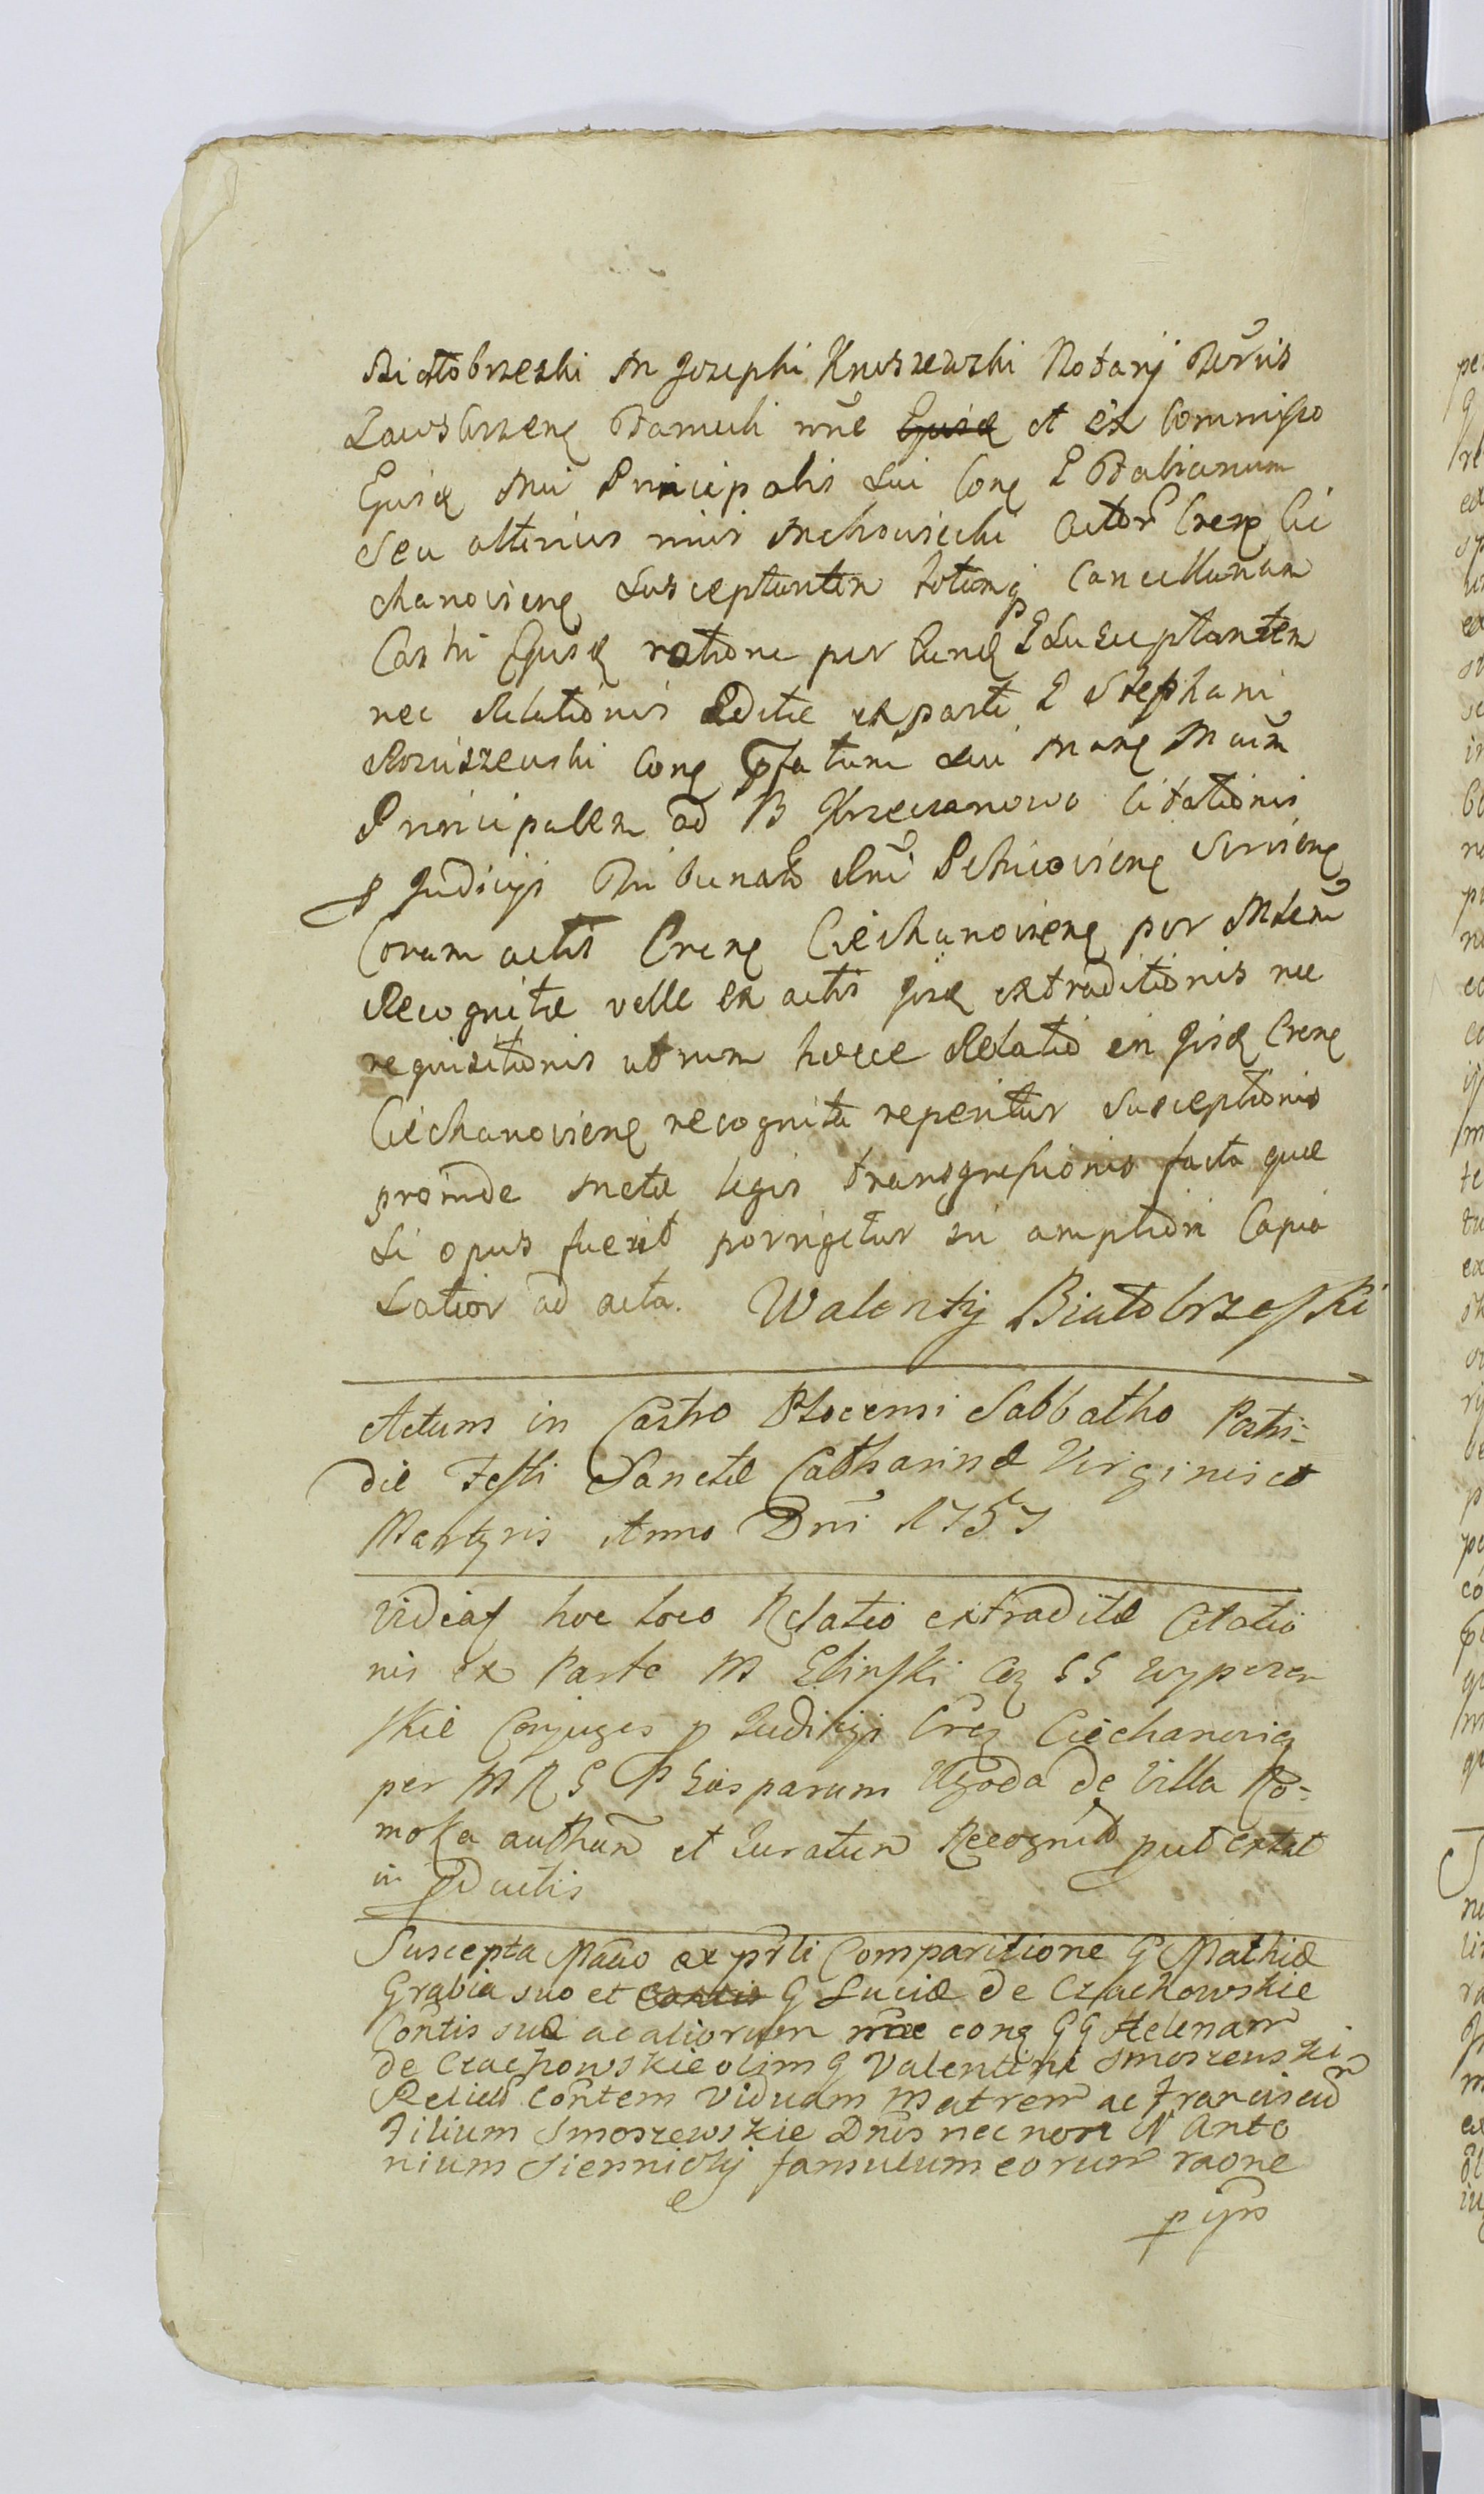 Białobrzeski M Josephi Kruszewski Notarij Terris
Zawskrzen Famuli nne Ejusd et ex Commisso
Ejusd Mci Principalis sui con G Fabianum
seu alterius nnis Mchowiecki actor Cren Cie
chanovien susceptantem totamq Cancellariam
Castri Ejusd ratione per eund G Susceptantem
nec Relationis Editæ ex parte G Stephani
Rosciszewski con pfatum sui Mane Mcum
Principalem ad B Chrzczanowo Citationis
p Judicijs Tribunals Rni Petricovien servien
Coram actis Cren Ciechanovien per Mtem
Recognitæ velle ex actis Ijsd extraditionis nec
requisitionis utrum hæcce Relatio in Ijsd Cren
Ciechanovien recognita reperitur susceptionis
proinde metæ legis transgressionis facta quæ
si opus fuerit porrigetur in ampliori Copia
Latior ad acta. Walenty Białobrzeski
Actum in Castro Plocensi Sabbatho Postri-
die Festi Sanctæ Catharinæ Virginis et
Martyris Anno Dni 1757
Videat hoc loco Relatio extraditæ Citatio
nis ex Parte M Glinski con GG
skie Conjuges p Judicijs Cren Ciechanovien
per M R G P Gasparum Ugoda de Villa Ro-
moka authen et Juratum Recognit put extat
in pd actis
Suscepta Mano ex prli Comparitione G Mathiæ
Grabia suo et Contis G Luciæ de Czachowskie
Contis suæ ac aliorum nne con GG Helenam
de Czachowskie olim G Valentini Smoszewski
Relictã Contem Viduam Matrem ac Franciscum
Filium Smoszewskie Dnis nec non N Anto
nium Siennicky famulum eorum raone
p ijns